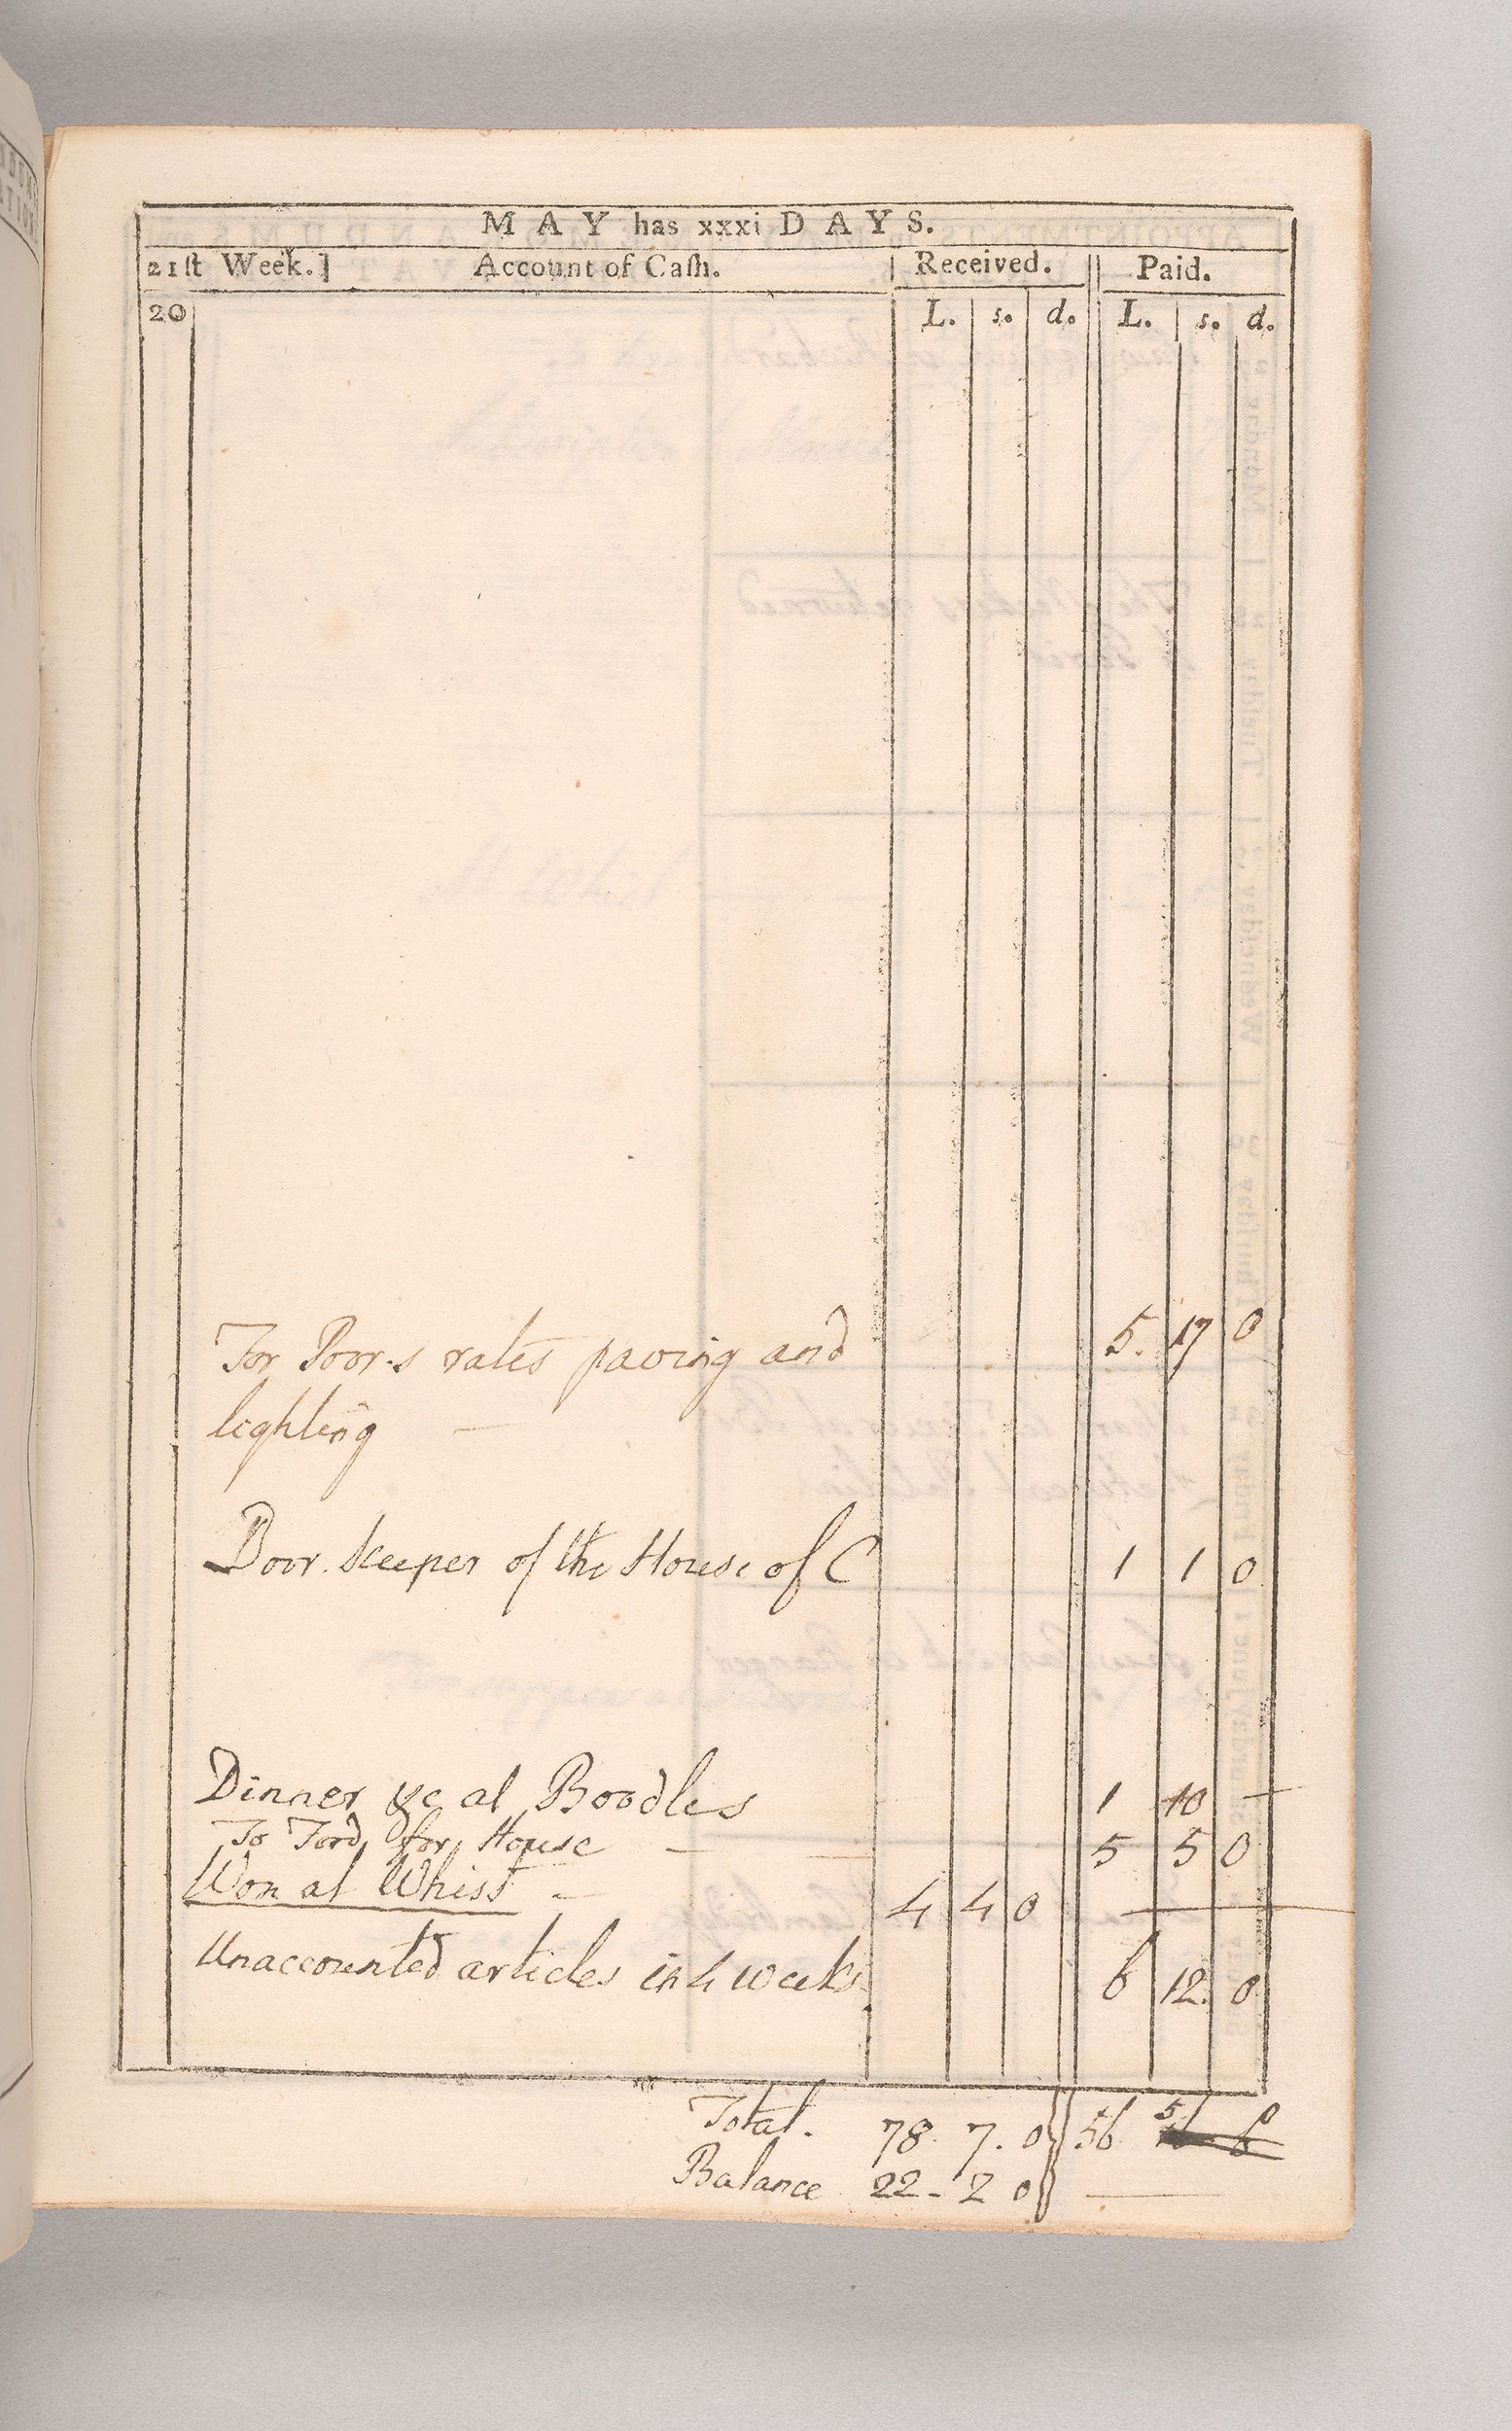 MAY has xxxi DAYS.
21ſt Week.] Account of Caſh. Received. Paid.
20 L. s. d. L. s. d.
For Poor.s rates paving and 5. 17 0
lighting —
Door keeper of the House of C 1 1 0
Dinner &c at Boodles 1 10 —
To Ford for House — 5 5 0
Won at Whist — 4 4 0
Unaccounted articles in 4 weeks 6 12. 0
Total. 78. 7. 0 56 5
Balance 22 - 2 0 —